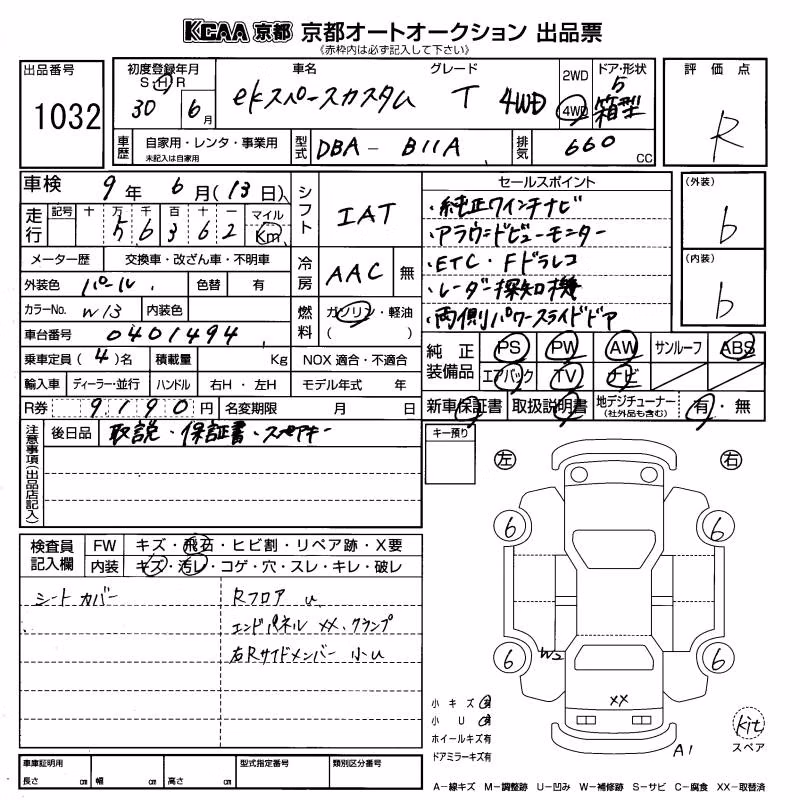 KCAA 京都 京都オートオークション 出品票
《赤枠内は必ず記入して下さい》
出品番号
1032
初度登録年月
S・H・R
30 6月
車名
グレード
ekスペースカスタム T 4WD
2WD
4WD
ドア・形状
5
箱型
評価点
R
車歴
自家用・レンタ・事業用
未記入は自家用
型式
DBA- B11A
排気
660 CC
車検 9年 6月(13日)
走行
記号 十 万 千 百 十 一 マイル
5 6 3 6 2 Km
メーター歴 交換車・改ざん車・不明車
外装色 パール 色替 有
カラーNo. W13 内装色
車台番号 0401494
乗車定員(4)名 積載量 Kg
輸入車 ディーラー・並行 ハンドル 右H・左H
R券 9190円 名変期限 月 日
シフト IAT
冷房 AAC 無
燃料 ガソリン・軽油
( )
NOX 適合・不適合
モデル年式 年
セールスポイント
・純正9インチナビ
・アラウンドビューモニター
・ETC・Fドラレコ
・レーダー探知機
・両側パワースライドドア
(外装)
b
(内装)
b
純正装備品
PS PW AW サンルーフ ABS
エアバック TV ナビ
新車保証書 取扱説明書 地デジチューナー(社外品も含む) 有・無
注意事項(出品店記入)
後日品 取説・保証書・スペアキー
キー預り
検査員記入欄
FW キズ・飛石・ヒビ割・リペア跡・X要
内装 キズ・汚レ・コゲ・穴・スレ・キレ・破レ
シートカバー
Rフロア u
エンドパネル XX、クランプ
右Rサイドメンバー 小u
左 右
6 6
6 6
W2
XX
A1
小キズ有
小U有
ホイールキズ有
ドアミラーキズ有
kit
スペア
車庫証明用
長さ cm 幅 cm 高さ cm
型式指定番号
類別区分番号
A-線キズ M-調整跡 U-凹み W-補修跡 S-サビ C-腐食 XX-取替済